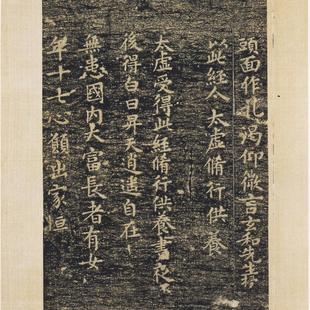 頭面作礼渴仰微言玄和先生
以此経人太虛脩行供養
太虛受得此経脩行供養書
後得白日昇天逍遥自在
無恚國內大富長者有女
年十七心願出家恒